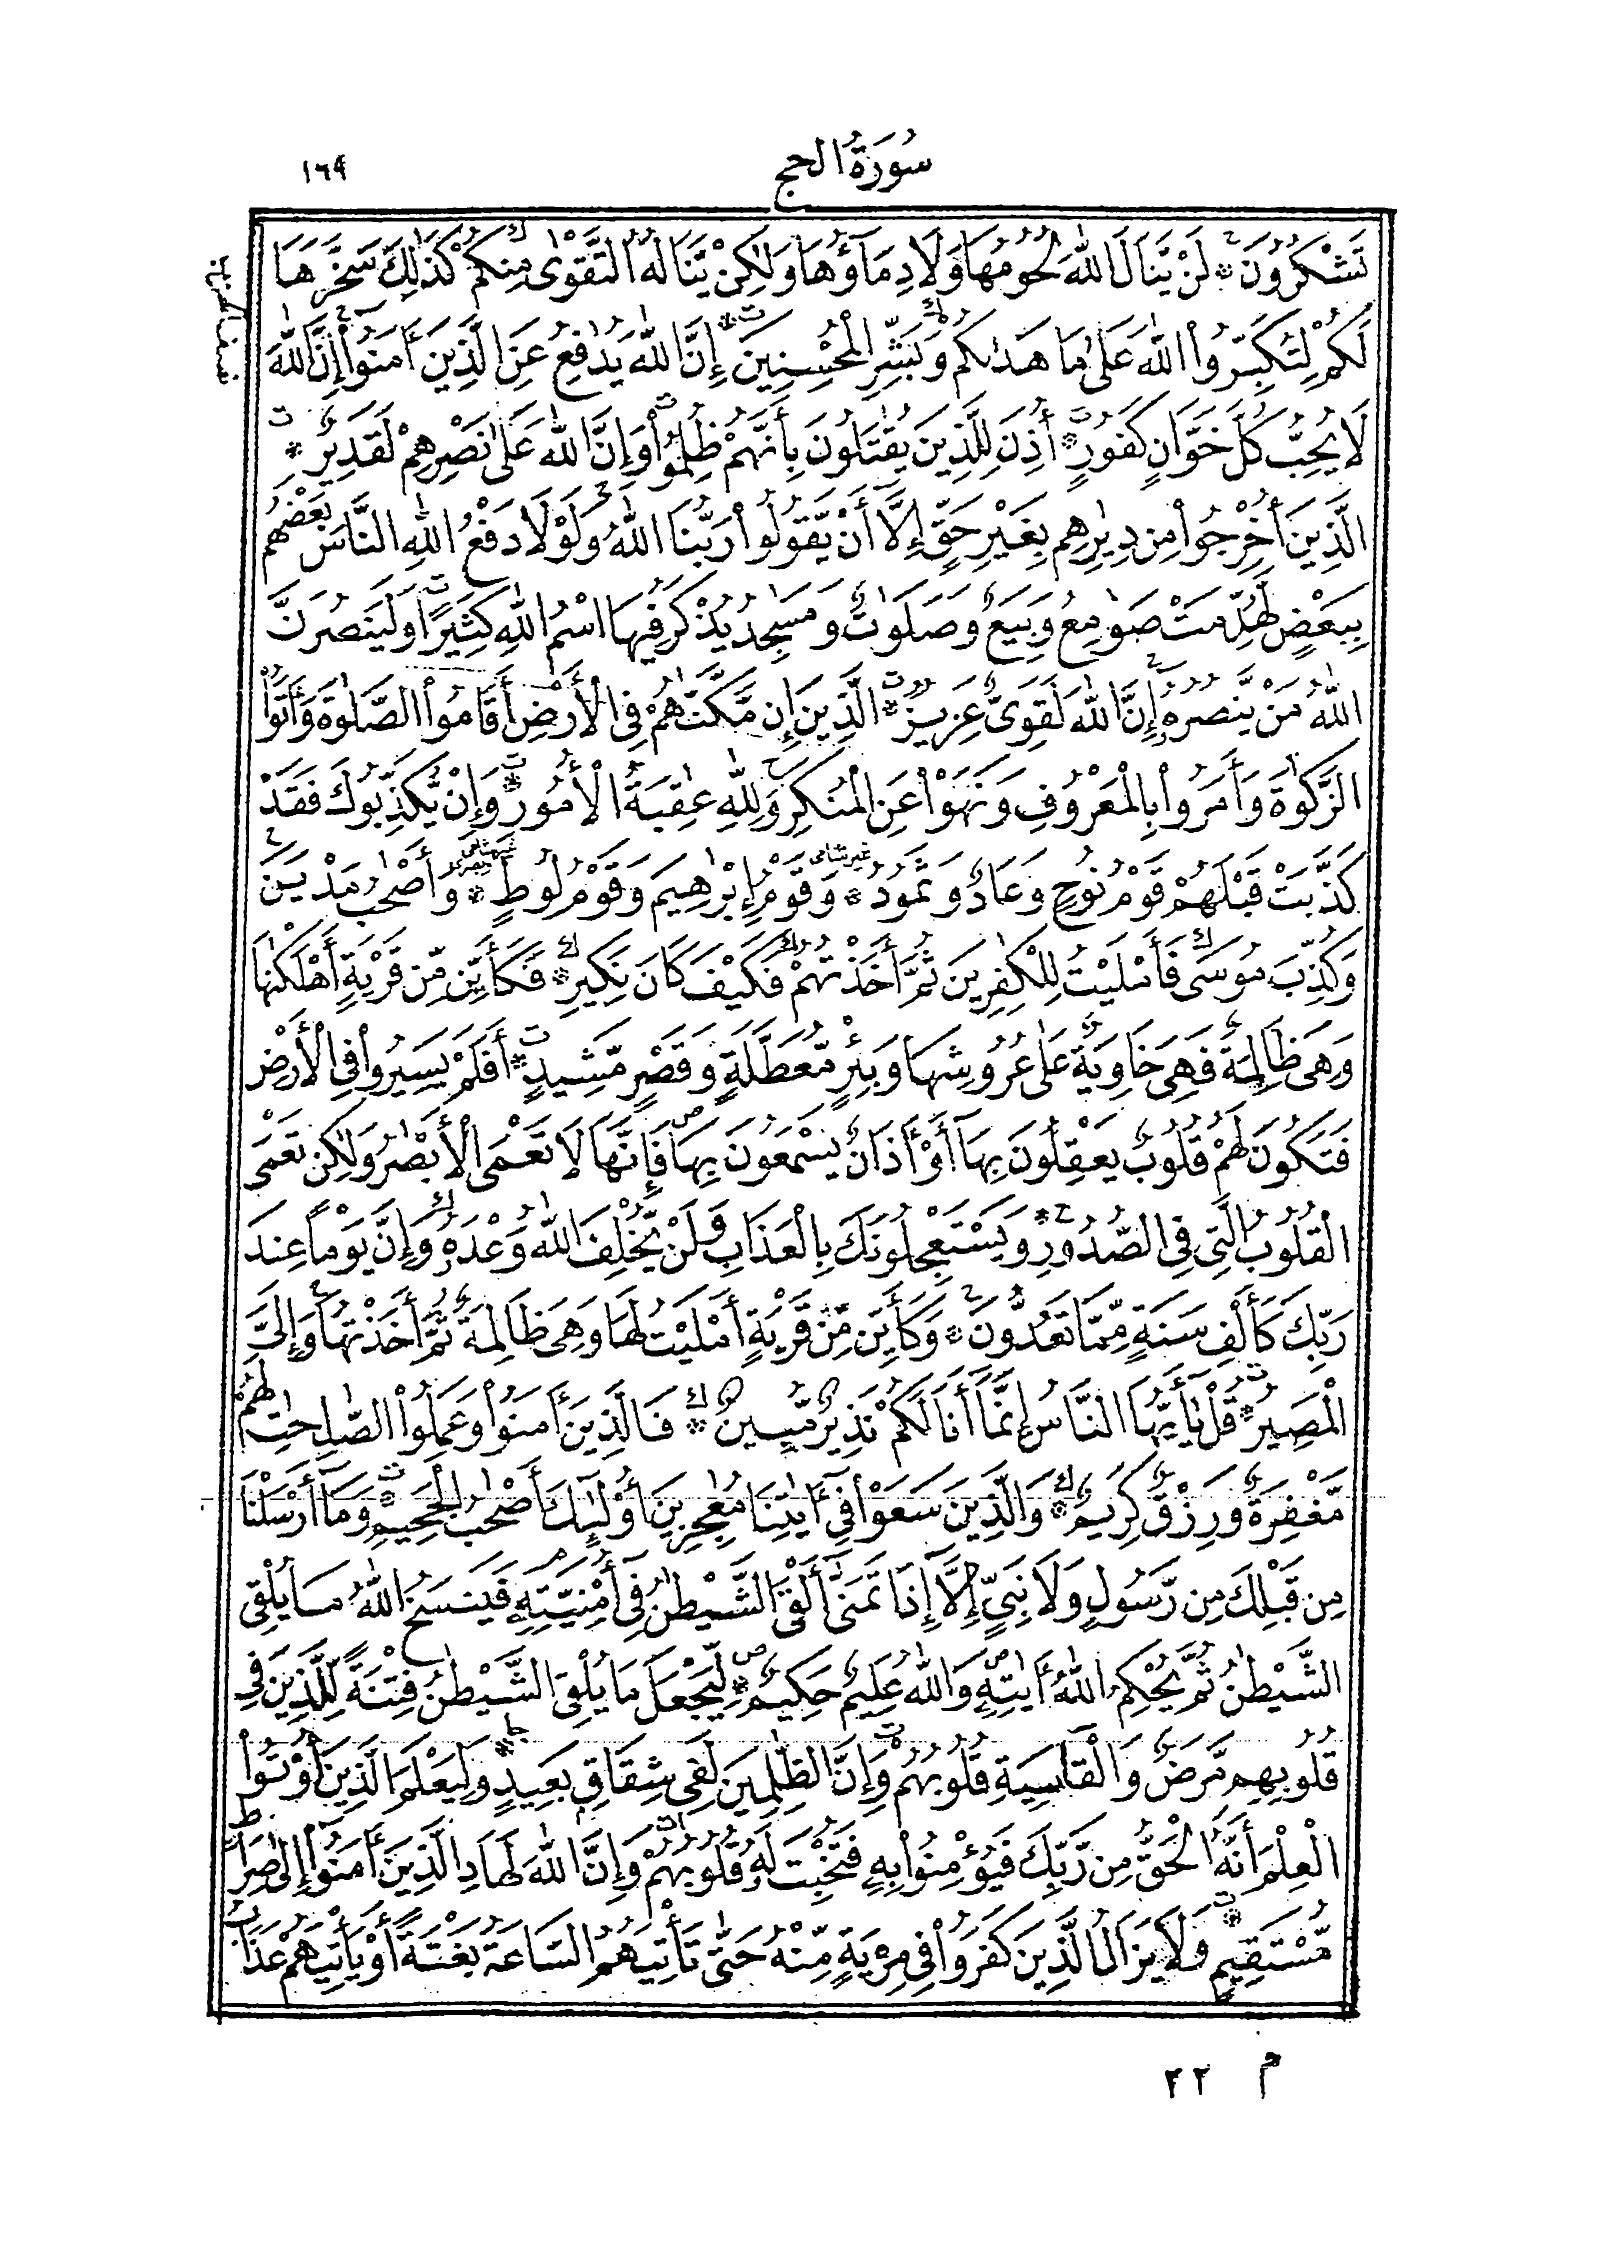 سُورَةُ الحج
١٦٩
تَشْكُرُونَ * لَنْ يَّنَالَ اللّٰهَ لُحُومُهَا وَلَا دِمَآؤُهَا وَلٰكِنْ يَّنَالُهُ التَّقْوٰى مِنكُمْ كَذٰلِكَ سَخَّرَهَا
لَكُمْ لِتُكَبِّرُواْ اللّٰهَ عَلٰى مَا هَدٰىكُمْ وَبَشِّرِ الْمُحْسِنِينَ * إِنَّ اللّٰهَ يُدٰفِعُ عَنِ الَّذِينَ ءَامَنُوٓاْ إِنَّ اللّٰهَ
لَا يُحِبُّ كُلَّ خَوَّانٍ كَفُورٍ * أُذِنَ لِلَّذِينَ يُقٰتَلُونَ بِأَنَّهُمْ ظُلِمُواْ وَإِنَّ اللّٰهَ عَلٰى نَصْرِهِمْ لَقَدِيرٌ *
الَّذِينَ أُخْرِجُواْ مِن دِيٰرِهِم بِغَيْرِ حَقٍّ إِلَّآ أَنْ يَّقُولُواْ رَبُّنَا اللّٰهُ وَلَوْلَا دَفْعُ اللّٰهِ النَّاسَ بَعْضَهُم
بِبَعْضٍ لَّهُدِّمَتْ صَوٰمِعُ وَبِيَعٌ وَصَلَوٰتٌ وَمَسٰجِدُ يُذْكَرُ فِيهَا اسْمُ اللّٰهِ كَثِيرًا وَلَيَنصُرَنَّ
اللّٰهُ مَنْ يَّنصُرُهُ إِنَّ اللّٰهَ لَقَوِىٌّ عَزِيزٌ * الَّذِينَ إِن مَّكَّنّٰهُمْ فِى الْأَرْضِ أَقَامُواْ الصَّلٰوةَ وَءَاتَوُاْ
الزَّكٰوةَ وَأَمَرُواْ بِالْمَعْرُوفِ وَنَهَوْاْ عَنِ الْمُنكَرِ وَلِلّٰهِ عٰقِبَةُ الْأُمُورِ * وَإِنْ يُّكَذِّبُوكَ فَقَدْ
كَذَّبَتْ قَبْلَهُمْ قَوْمُ نُوحٍ وَعَادٌ وَثَمُودُ * وَقَوْمُ إِبْرٰهِيمَ وَقَوْمُ لُوطٍ * وَأَصْحٰبُ مَدْيَنَ
وَكُذِّبَ مُوسٰى فَأَمْلَيْتُ لِلْكٰفِرِينَ ثُمَّ أَخَذْتُهُمْ فَكَيْفَ كَانَ نَكِيرِ * فَكَأَيِّن مِّن قَرْيَةٍ أَهْلَكْنٰهَا
وَهِىَ ظَالِمَةٌ فَهِىَ خَاوِيَةٌ عَلٰى عُرُوشِهَا وَبِئْرٍ مُّعَطَّلَةٍ وَقَصْرٍ مَّشِيدٍ * أَفَلَمْ يَسِيرُواْ فِى الْأَرْضِ
فَتَكُونَ لَهُمْ قُلُوبٌ يَعْقِلُونَ بِهَآ أَوْ ءَاذَانٌ يَسْمَعُونَ بِهَا فَإِنَّهَا لَا تَعْمَى الْأَبْصٰرُ وَلٰكِن تَعْمَى
الْقُلُوبُ الَّتِى فِى الصُّدُورِ * وَيَسْتَعْجِلُونَكَ بِالْعَذَابِ وَلَنْ يُّخْلِفَ اللّٰهُ وَعْدَهُ وَإِنَّ يَوْمًا عِندَ
رَبِّكَ كَأَلْفِ سَنَةٍ مِّمَّا تَعُدُّونَ * وَكَأَيِّن مِّن قَرْيَةٍ أَمْلَيْتُ لَهَا وَهِىَ ظَالِمَةٌ ثُمَّ أَخَذْتُهَا وَإِلَىَّ
الْمَصِيرُ * قُلْ يٰٓأَيُّهَا النَّاسُ إِنَّمَآ أَنَا۠ لَكُمْ نَذِيرٌ مُّبِينٌ * فَالَّذِينَ ءَامَنُواْ وَعَمِلُواْ الصّٰلِحٰتِ لَهُم
مَّغْفِرَةٌ وَرِزْقٌ كَرِيمٌ * وَالَّذِينَ سَعَوْاْ فِىٓ ءَايٰتِنَا مُعٰجِزِينَ أُوْلٰٓئِكَ أَصْحٰبُ الْجَحِيمِ * وَمَآ أَرْسَلْنَا
مِن قَبْلِكَ مِن رَّسُولٍ وَلَا نَبِىٍّ إِلَّآ إِذَا تَمَنّٰىٓ أَلْقَى الشَّيْطٰنُ فِىٓ أُمْنِيَّتِهِ فَيَنسَخُ اللّٰهُ مَا يُلْقِى
الشَّيْطٰنُ ثُمَّ يُحْكِمُ اللّٰهُ ءَايٰتِهِ وَاللّٰهُ عَلِيمٌ حَكِيمٌ * لِّيَجْعَلَ مَا يُلْقِى الشَّيْطٰنُ فِتْنَةً لِّلَّذِينَ فِى
قُلُوبِهِم مَّرَضٌ وَالْقَاسِيَةِ قُلُوبُهُمْ وَإِنَّ الظّٰلِمِينَ لَفِى شِقَاقٍ بَعِيدٍ * وَلِيَعْلَمَ الَّذِينَ أُوْتُواْ
الْعِلْمَ أَنَّهُ الْحَقُّ مِن رَّبِّكَ فَيُؤْمِنُواْ بِهِ فَتُخْبِتَ لَهُ قُلُوبُهُمْ وَإِنَّ اللّٰهَ لَهَادِ الَّذِينَ ءَامَنُوٓاْ إِلٰى صِرَاطٍ
مُّسْتَقِيمٍ * وَلَا يَزَالُ الَّذِينَ كَفَرُواْ فِى مِرْيَةٍ مِّنْهُ حَتّٰى تَأْتِيَهُمُ السَّاعَةُ بَغْتَةً أَوْ يَأْتِيَهُمْ عَذَابُ
م ٢٢